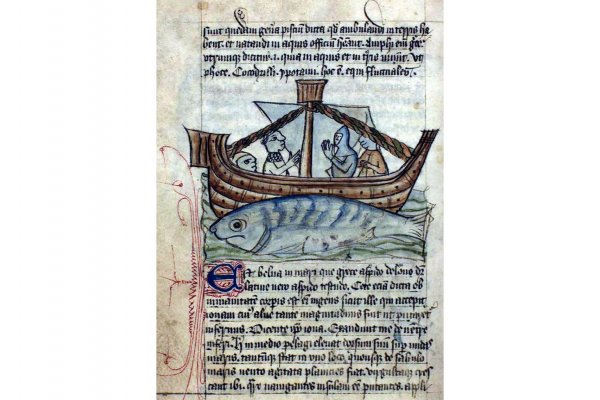 sunt quedam genera pisciū dicta qd ambulandi in terris ha
bent. et natandi in aquis officiū h̄ant. Amphi em̄ grec
dicitur .i. quia in aquis et in t̄ris vivunt. ut
phoce. Cocodrilli. ypotami. hoc ē. equi fluctuales.
Est belua in mari que grece aspido delone dr̄
latine vero aspido testudo. Cete etiā dicta ob
immanitatem corpis est em̄ ingens sicut ille qui accepit
ionam cui⁹ alvus tante magnitudinis fuit ut putaret
infernus. Dicente ip̄o iona. Exaudivit me de ventre
inferi. in medio pelagi elevat dorsum suū sup̄ undas
maris. stat in uno loco. quousque de sabulo
maris vento agitata planicies fiat. cres
cant ibi. navigantes insulam eē putantes. appli